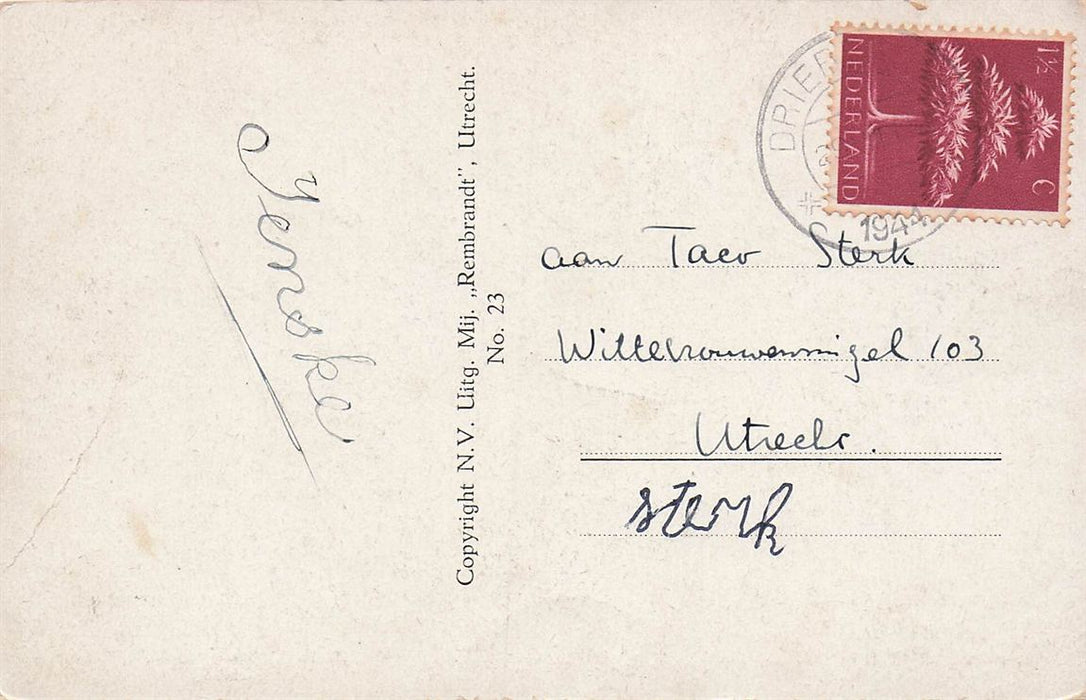 Jenske
Copyright N.V. Uitg. Mij. „Rembrandt”, Utrecht.
No. 23
NEDERLAND
1½ C
DRIEB
1944
aan Taco Sterk
Wittevrouwensingel 103
Utrecht.
Sterk